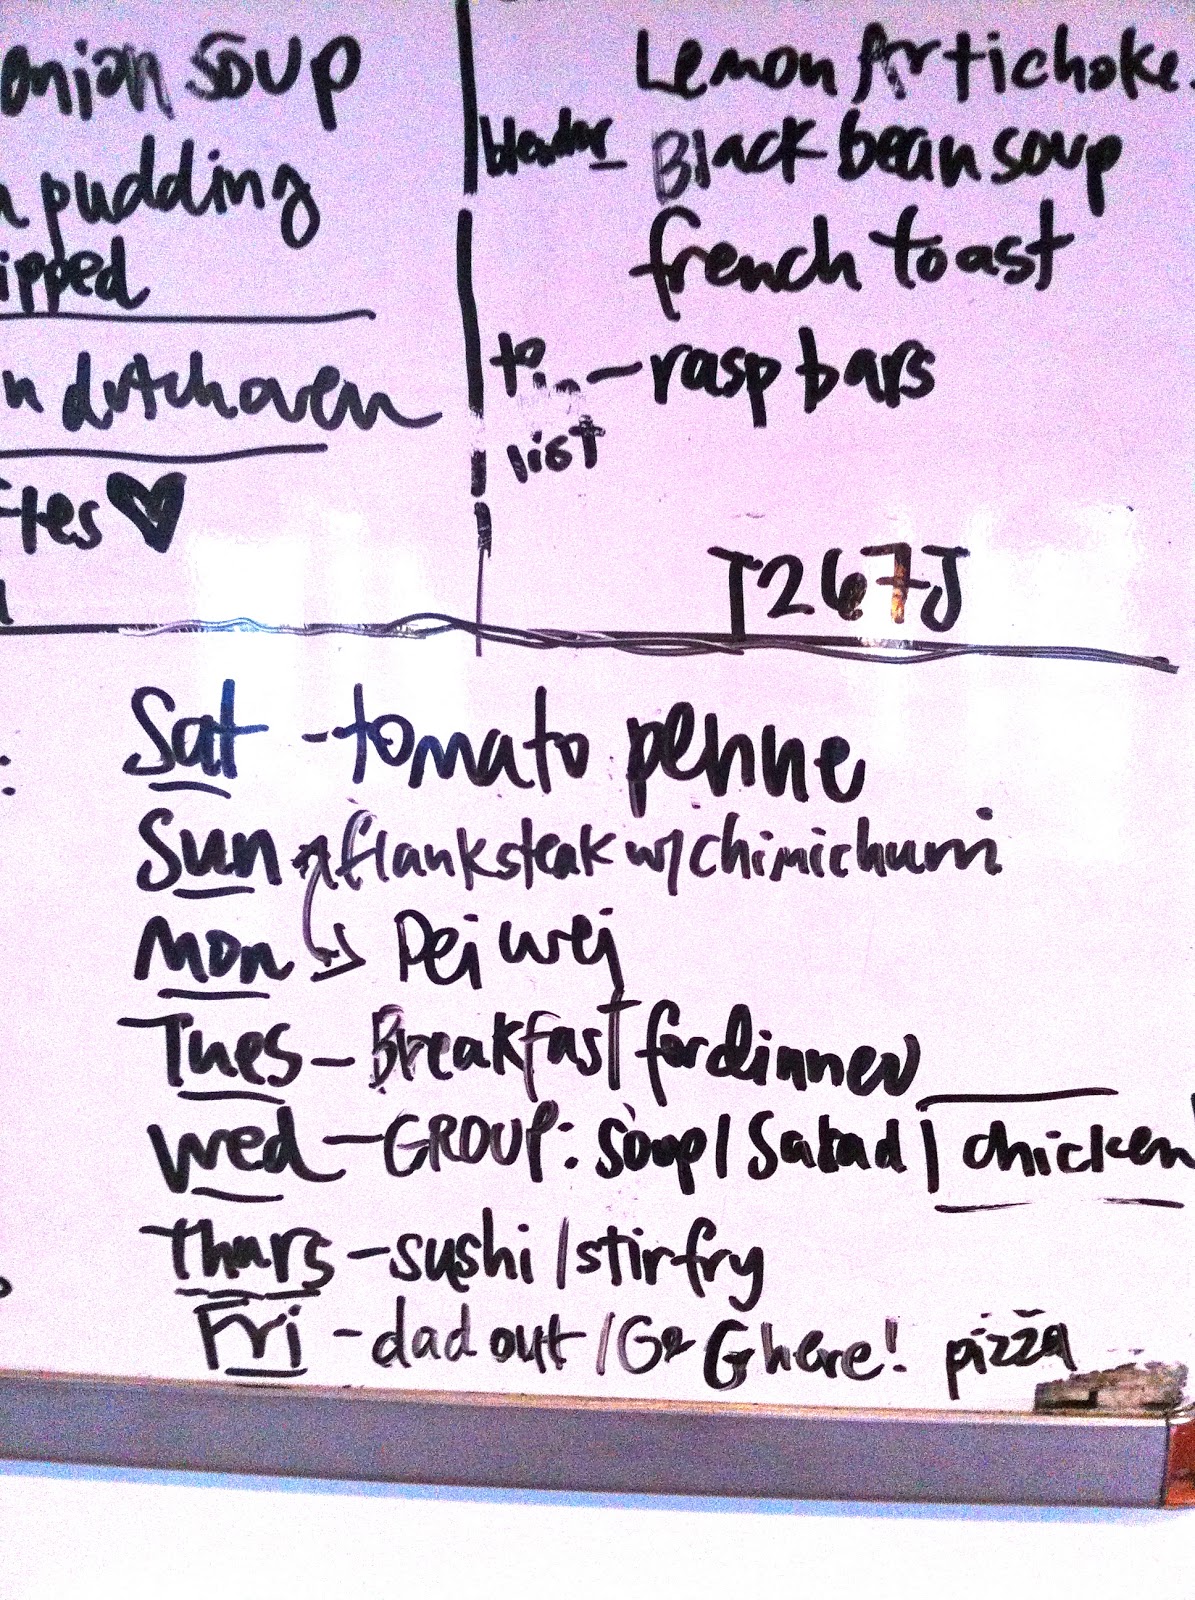 onion soup
pudding
dutch oven
♥
Lemon Artichoke
blender - Black bean soup
french toast
- rasp bars
list
T267J
Sat - tomato penne
Sun flank steak w/ chimichurri
Mon → Pei wei
Tues - Breakfast for dinner
Wed - GROUP: Soup/Salad/chicken
Thurs - sushi/stirfry
Fri - dad out/G2 G here! pizza